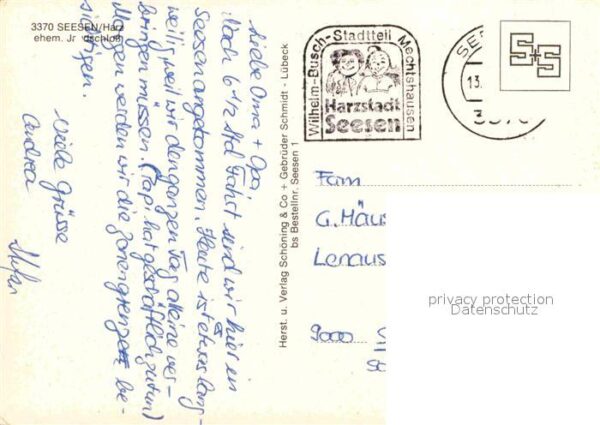 3370 SEESEN/Harz
ehem. Jagdschloß
Liebe Oma + Opa,
Nach 6 1/2 Std Fahrt sind wir hier in
Seesen angekommen. Heute ist etwas lang-
weilig, weil wir den ganzen Tag alleine ver-
bringen müssen (Papi hat geschäftlich zu tun)
Morgen werden wir die Zonengrenze be-
sichtigen.
Viele Grüsse
Andrea
Stefan
Herst. u. Verlag Schöning & Co + Gebrüder Schmidt - Lübeck
bs Bestellnr. Seesen 1
Wilhelm-Busch-Stadtteil Mechtshausen
Harzstadt
Seesen
SE
13.
3370
S+S
Fam
G. Häu
Lenaus
9000
privacy protection
Datenschutz